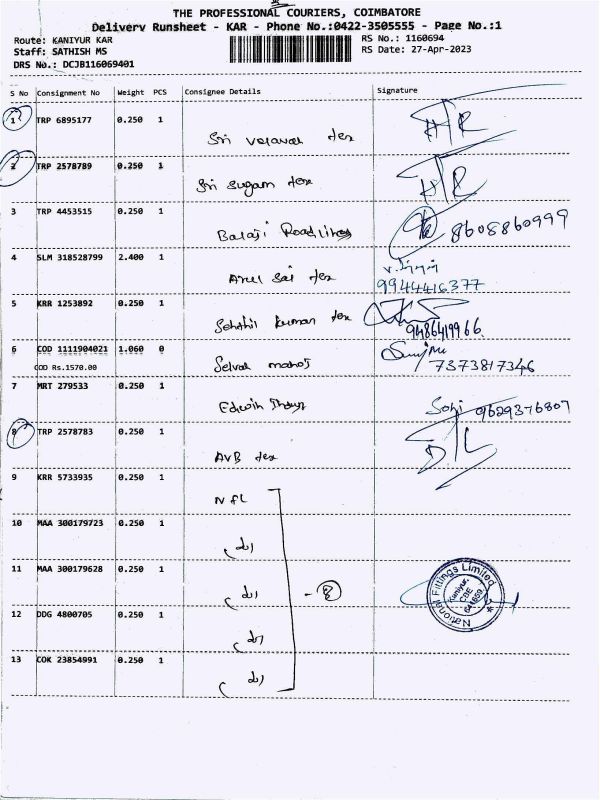 THE PROFESSIONAL COURIERS, COIMBATORE
Delivery Runsheet - KAR - Phone No.:0422-3505555 - Page No.:1
Route: KANIYUR KAR
RS No.: 1160694
Staff: SATHISH MS
RS Date: 27-Apr-2023
DRS No.: DCJB116069401
S No Consignment No Weight PCS Consignee Details Signature
1 TRP 6895177 0.250 1
Sri tex
2 TRP 2578789 0.250 1
Sri Sugam tex
3 TRP 4453515 0.250 1
Balaji Roadlines 8608860999
4 SLM 318528799 2.400 1
Arul Sai tex
9944416377
5 KRR 1253892 0.250 1
Senthil Kumar tex
9486419966
6 COD 1111904021 1.060 0
COD Rs.1570.00 Selva manoj 7373817346
7 MRT 279533 0.250 1
Edwin 9629376807
8 TRP 2578783 0.250 1
AVB tex
9 KRR 5733935 0.250 1
NFL
10 MAA 300179723 0.250 1
11 MAA 300179628 0.250 1
- 8
National Fittings Limited
Kaniyur, CBE 641659
12 DDG 4800705 0.250 1
13 COK 23854991 0.250 1